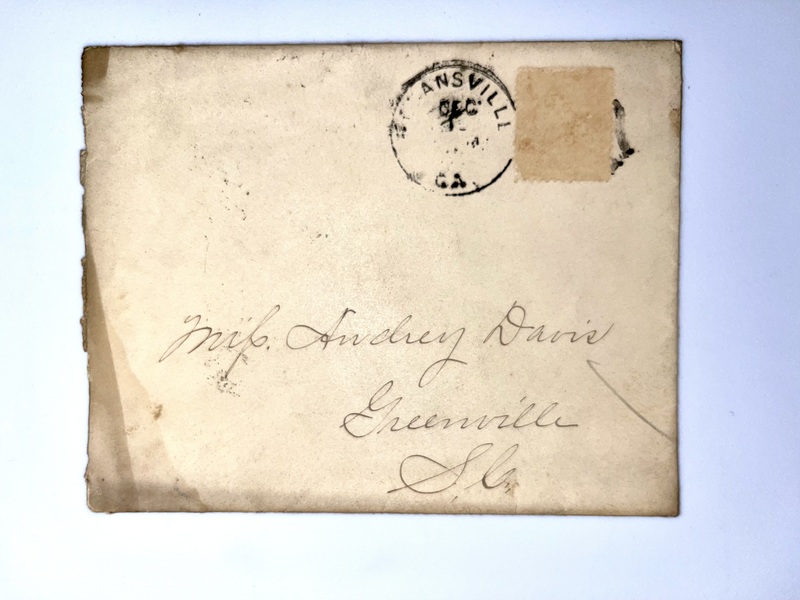 DEC
GA.
Miss. Audrey Davis
Greenville
S.C.